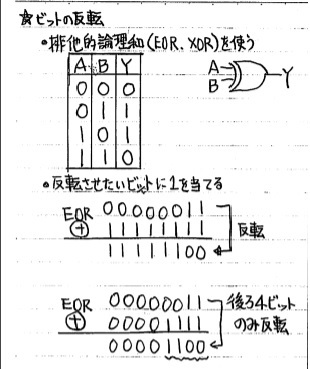 ☆ビットの反転
•排他的論理和(EOR、XOR)を使う
A B Y
0 0 0
0 1 1
1 0 1
1 1 0
A
B
Y
•反転させたいビットに1を当てる
EOR 00000011
⊕ 11111111
11111100
反転
EOR 00000011
⊕ 00001111
00001100
後ろ4ビット
のみ反転